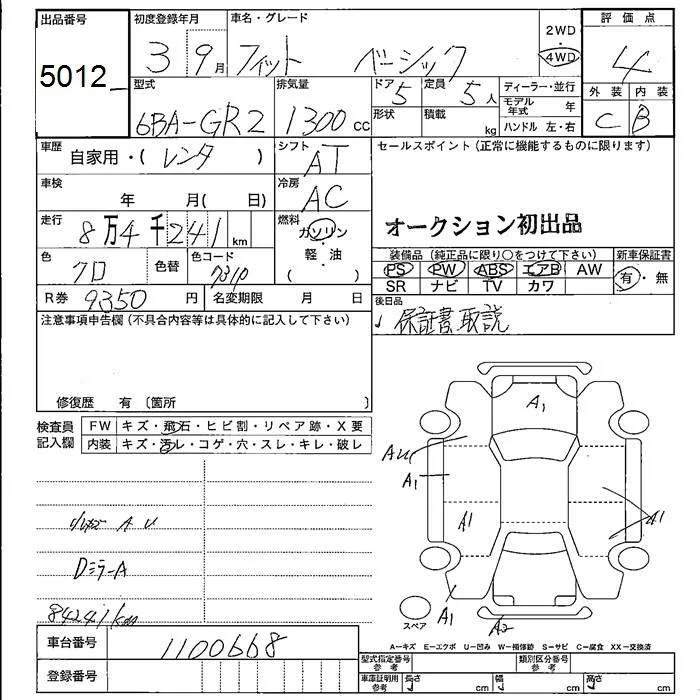 出品番号 初度登録年月 車名・グレード 評価点
5012 3 9月 フィット ベーシック 2WD・4WD 4
型式 排気量 ドア 定員 ディーラー・並行 外装 内装
6BA-GR2 1300cc 5 5人 モデル年式 年 C B
形状 積載 kg ハンドル 左・右
車歴 自家用・( レンタ ) シフト AT セールスポイント(正常に機能するものに限ります)
車検 年 月( 日) 冷房 AC
走行 8万4千241km 燃料 ガソリン・軽油 ( ) オークション初出品
色 クロ 色替 色コード 装備品(純正品に限り○をつけて下さい) 新車保証書
PS PW ABS エアB AW 有・無
SR ナビ TV カワ
R券 9350円 名変期限 月 日 後日品
注意事項申告欄(不具合内容等は具体的に記入して下さい) 保証書 取説
修復歴 有 〔箇所 〕
検査員記入欄 FW キズ・飛石・ヒビ割・リペア跡・X要
内装 キズ・汚レ・コゲ・穴・スレ・キレ・破レ
A1
AU
A1
A1 A1
A U
Dミラー A
84241km
A1 A2
スペア
A−キズ E−エクボ U−凹み W−補修跡 S−サビ C−腐食 XX−交換済
車台番号 1100668
型式指定番号 参考 類別区分番号 参考
登録番号 車庫証明用 参考 長さ cm 幅 cm 高さ cm